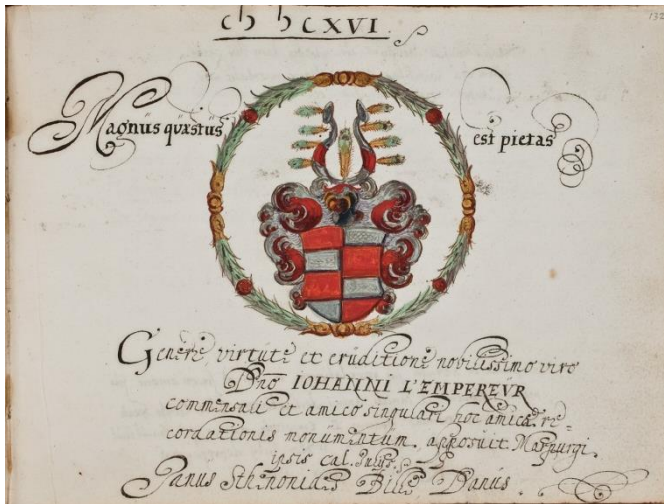 cIɔ Iɔ CXVI.
132
Magnus quæstus est pietas
Generē virtutē et eruditionē nobilissimo viro
Dnō IOHANNI L'EMPEREVR
commensali et amico singulari hoc amicæ re-
cordationis monumentum. apposuit Marpurgi.
ipsis cal. Julys.
Janus Sthenonidēs Billē Danus.